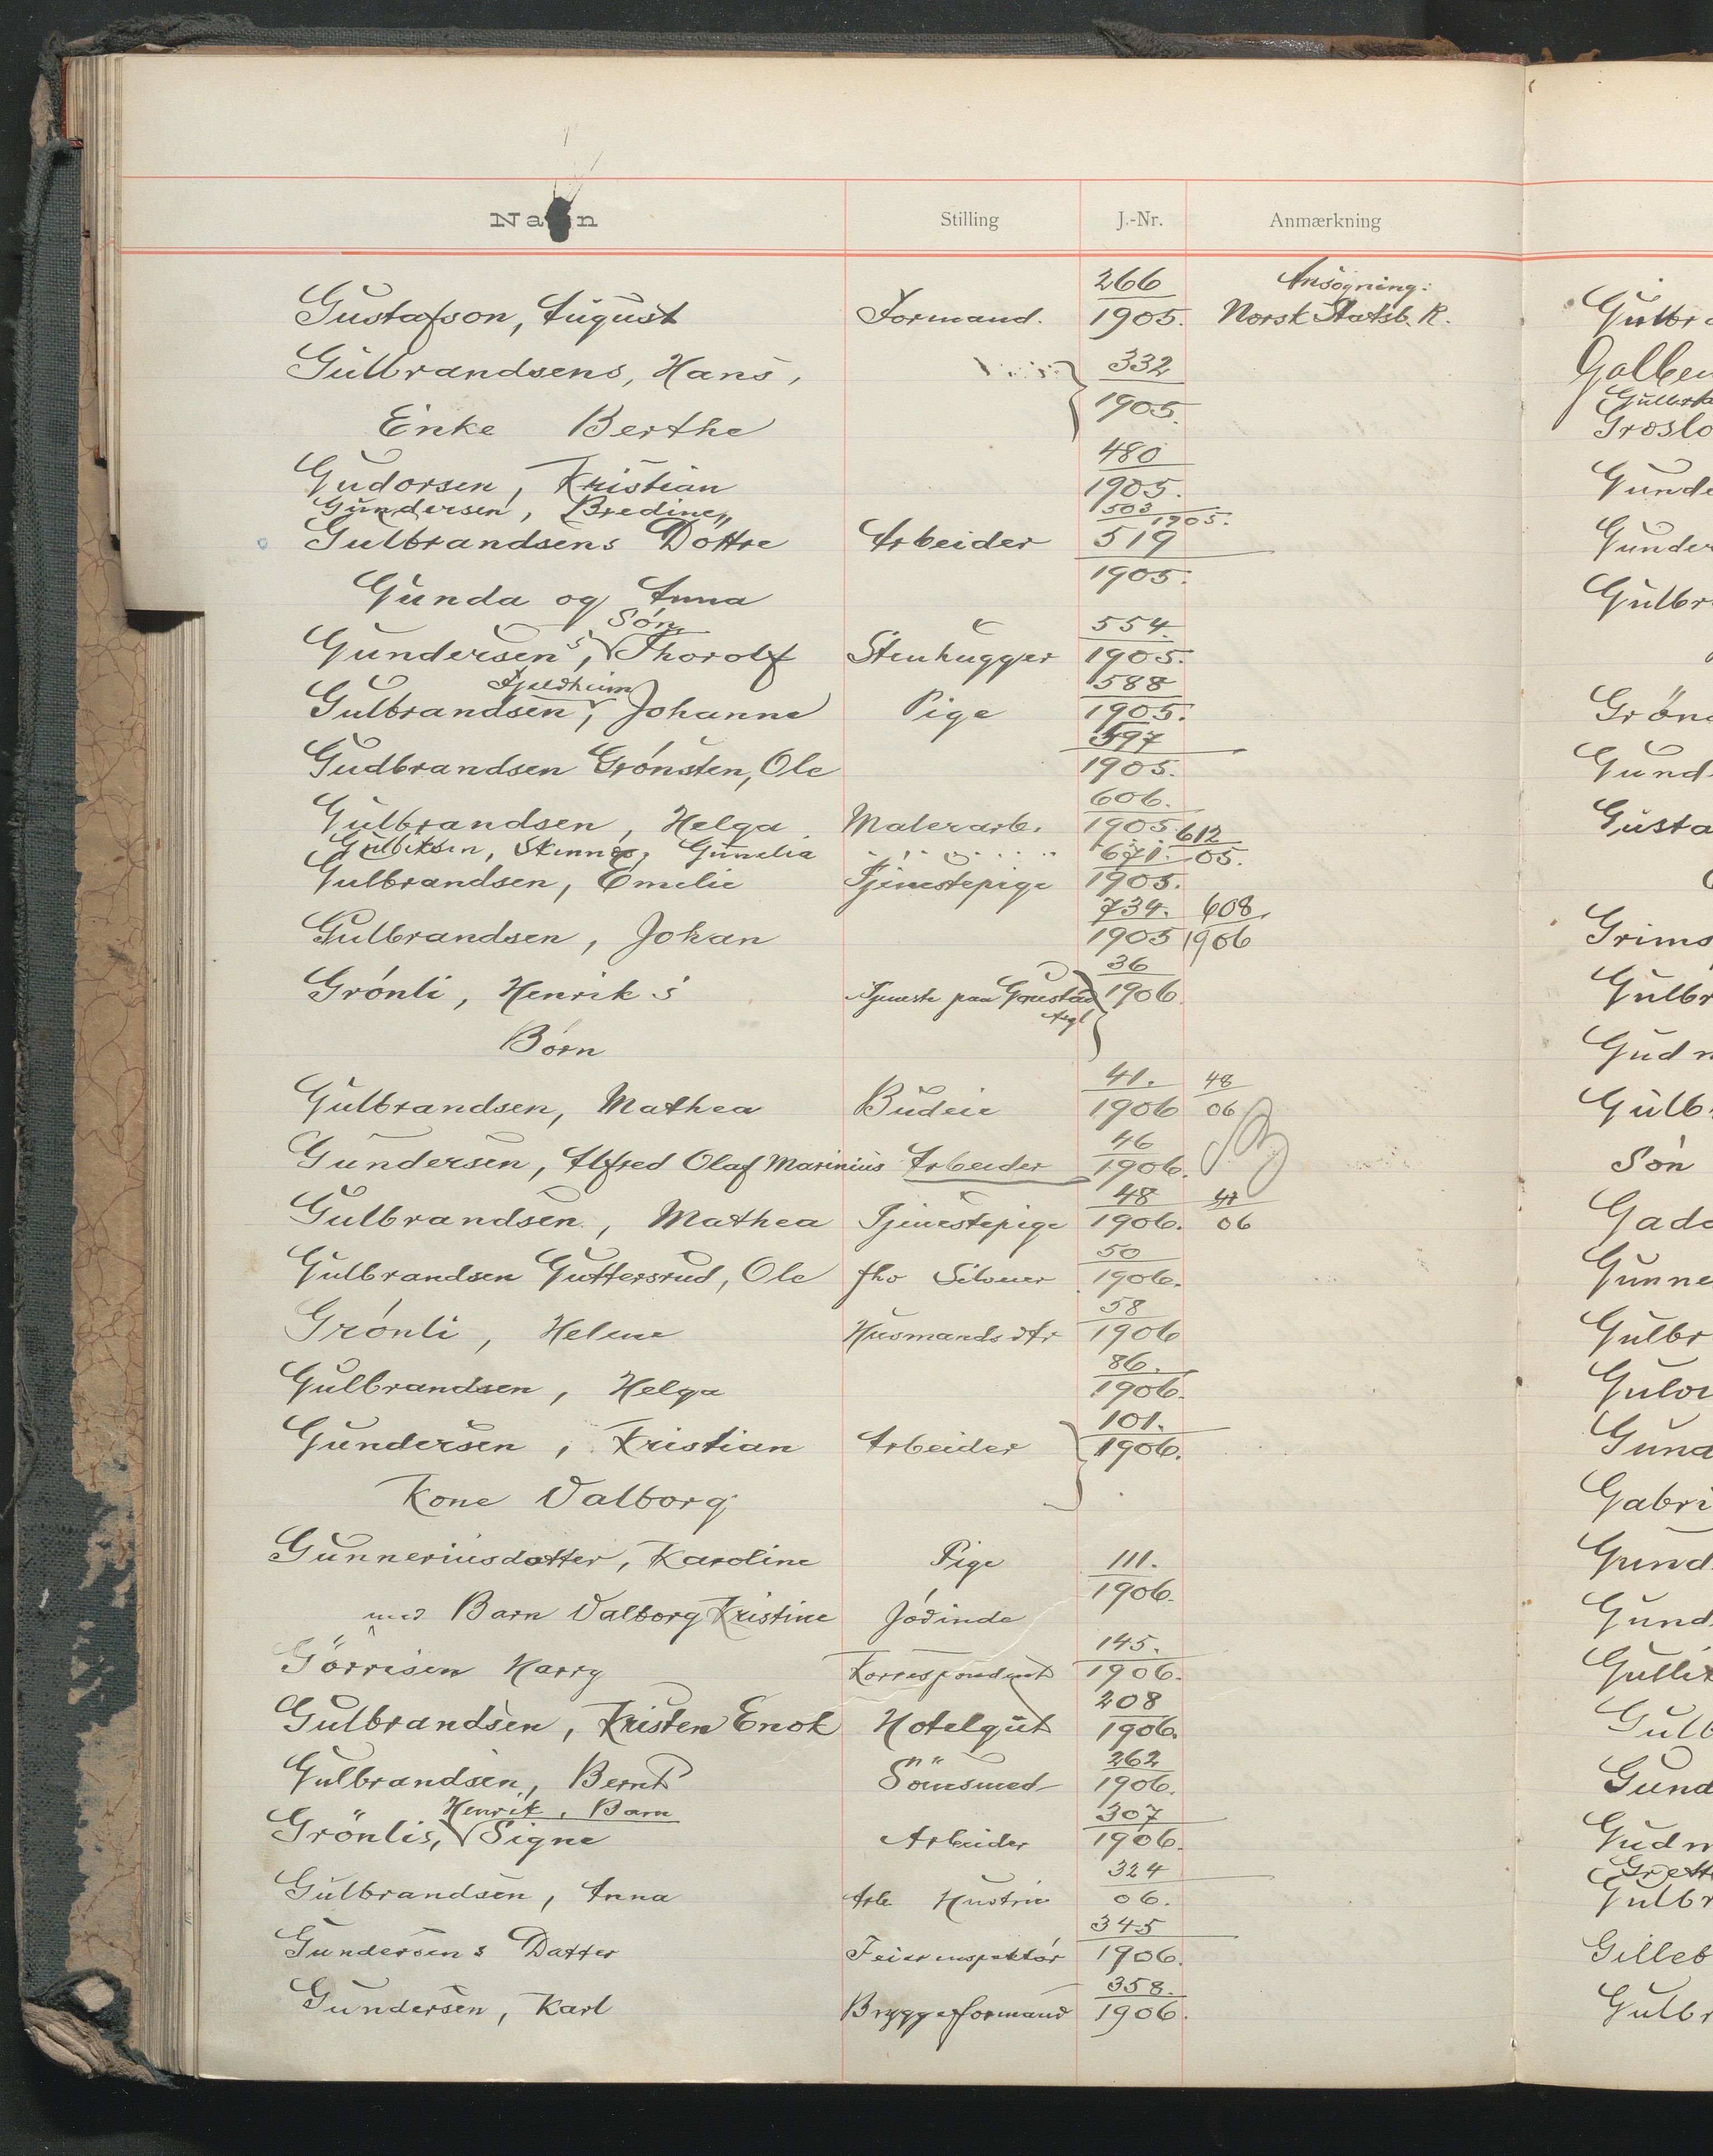 Navn Stilling J.-Nr. Anmærkning
266 Ansøgning:
Gustafson, August Formand. 1905. Norsk Statsb. R.
Gulbrandsens, Hans, 332
Enke Berthe 1905.
480
Gudorsen, Kristian 1905.
Gundersen, Bredine 503 1905.
Gulbrandsens Døttre Arbeider 519
Gunda og Anna 1905.
Søn 554.
Gundersens, Thorolf Stenhugger 1905.
Fjeldheim 588
Gulbrandsen, Johanne Pige 1905.
597
Gudbrandsen Grønsten, Ole 1905.
606.
Gulbrandsen, Helga Malerarb. 1905 612
Gunelia 671. 05.
Gulbrandsen, Emelie Tjenestepige 1905.
734. 608.
Gulbrandsen, Johan 1905 1906
36
Grønli, Henrik's Tjeneste paa Gaustad 1906.
Asyl
Børn
41. 48
Gulbrandsen, Mathea Budeie 1906 06
46
Gundersen, Alfred Olaf Marinius Arbeider 1906.
48 41
Gulbrandsen, Mathea Tjenestepige 1906. 06
50
Gulbrandsen Guttersrud, Ole fhv 1906.
58
Grønli, Helene Husmandsdtr 1906
86.
Gulbrandsen, Helga 1906.
101.
Gundersen, Kristian Arbeider 1906.
Kone Valborg
Gunneriusdatter, Karoline Pige 111.
1906.
med Barn Valborg Kristine Jødinde
145.
Görrisen Harry Korrespondent 1906.
208
Gulbrandsen, Kristen Enok Hotelgut 1906.
262
Gulbrandsen, Bernt Sömsmed 1906.
Henrik, Barn 307
Grönlis, Signe Arbeider 1906.
324
Gulbrandsen, Anna Arb. Hustru 06.
345
Gundersens Datter Feierinspektör 1906.
358.
Gundersen, Karl Bryggeformand 1906.